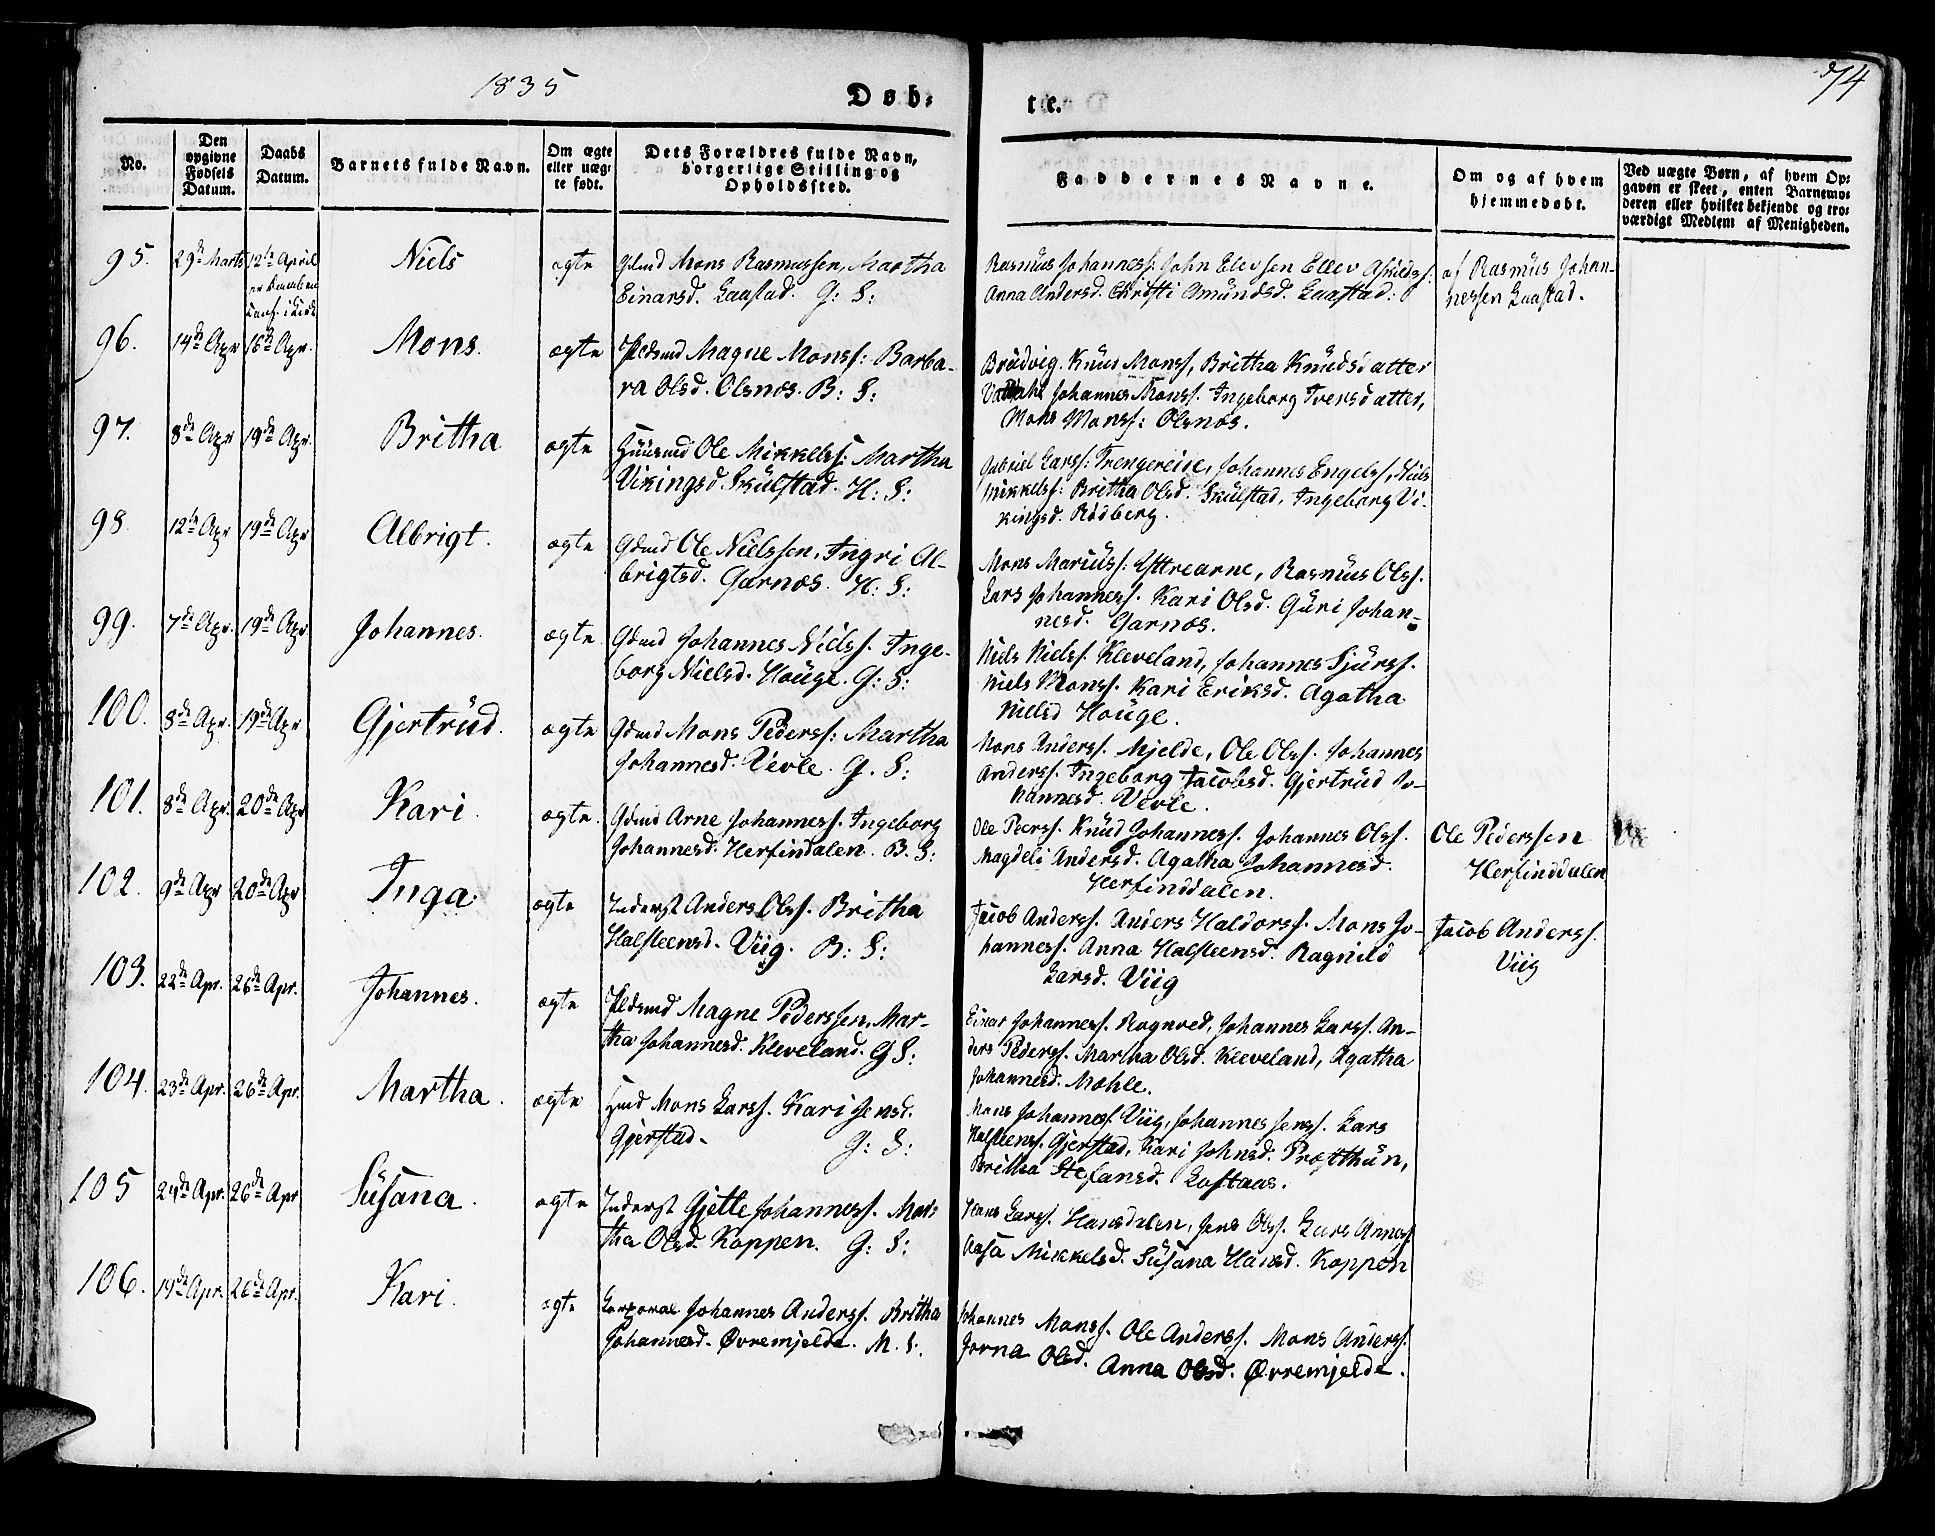 1835
Døb-
te.
74
No.
Den opgivne Fødsels Datum.
Daabs Datum.
Barnets fulde Navn.
Om ægte eller uæg-te født.
Dets Forældres fulde Navn, borgerlige Stilling og Opholdssted.
Faddernes Navne.
Om og af hvem hjemmedøbt.
Ved uægte Børn, af hvem Op-gaven er skeet, enten Barnemo-deren eller hvilket bekjendt og tro-værdigt Medlem af Menigheden.
95. 29de Marts 12te April Niels ægte Gdmd Mons Rasmussen, Martha
Einarsd. Laastad. G: S:
Rasmus Johanness: John Elevsen Ellev Askilds:
Anna Andersd. Christi Amundsd. Laastad:
af Rasmus Johan-
nessen Laastad.
96. 14de Apr 16de Apr. Mons. ægte Plsmd Magne Monss: Barba-
ra Olsd. Olsnæs. B: S:
Brudvig. Knud Monss, Britha Knudsdatter
Johannes Monss. Ingeborg Iversdatter,
Mons Monss: Olsnæs.
97. 8de Apr 19de Apr. Britha ægte Huusmd Ole Mikkelss: Martha
Vikingsd Skulstad. H: S:
Gabriel Larss: Trengereide, Johannes Engelss, Niels
Mikkelss: Britha Olsd. Skulstad, Ingeborg Vi-
kingsd. Rødberg.
98. 12te Apr 19de Apr Albrigt. ægte Gdmd Ole Nielssen, Ingri Al-
brigtsd. Garnæs. H: S:
Mons Mariuss: Yttrearne, Rasmus Olss.
Lars Johanness. Kari Olsd. Guri Johan-
nesd. Garnæs.
99. 7de Apr. 19de Apr Johannes. ægte Gdmd Johannes Nielss. Inge-
borg Nielsd. Houge. G: S:
Niels Nielss. Kleveland, Johannes Sjurss.
Niels Monss. Kari Eriksd. Agatha
Nielsd Houge.
100. 8de Apr. 19de Apr Gjertrud. ægte Gdmd Mons Pederss: Martha
Johannesd. Vevle. G. S:
Mons Anderss. Mjelde, Ole Olss. Johannes
Anderss. Ingeborg Jacobsd. Gjertrud Jo-
hannesd. Vevle.
101. 8de Apr. 20de Apr Kari. ægte. Gdmd Arne Johanness. Ingeborg
Johannesd. Herfindalen. B. S:
Ole Peerss. Knud Johanness. Johannes Olss.
Magdeli Andersd. Agatha Johannesd.
Herfinddalen.
Ole Pederssen
Herfinddalen
102. 9de Apr 20de Apr Inga. ægte Inderst Anders Olss. Britha
Halsteensd. Viig. B: S:
Jacob Anderss. Anders Haldorss. Mons Jo-
hanness. Anna Halsteensd. Ragnild
Larsd. Viig
Jacob Anderss.
Viig
103. 22de Apr. 26de Apr. Johannes. ægte Plsmd Magne Pederssen, Mar-
tha Johannesd. Kleveland. G S:
Einar Johanness. Rognved, Johannes Larss. An-
ders Pederss. Martha Olsd. Kleveland, Agatha
Johannesd. Mæhle.
104. 23de Apr. 26de Apr. Martha. ægte Hmd Mons Larss. Kari Jensd.
Gjerstad. G: S:
Mons Johanness Viig, Johannes Jenss. Lars
Halsteenss. Gjerstad, Kari Johnsd. Præsthun,
Britha Stefansd. Loftaas.
105 24de Apr. 26de Apr Susana. ægte Inderst Gjette Johanness. Mar-
tha Olsd. Koppen. G: S:
Hans Larss. Hansdalen, Jens Olss. Lars Arness
Aasa Mikkelsd. Susana Hansd. Koppen
106. 19de Apr. 26de Apr. Kari. ægte Corporal Johannes Anderss. Britha
Johannesd. Øvremjelde. M. S.
Johannes Monss. Ole Anderss. Mons Anderss.
Olsd. Anna Olsd. Øvremjelde.